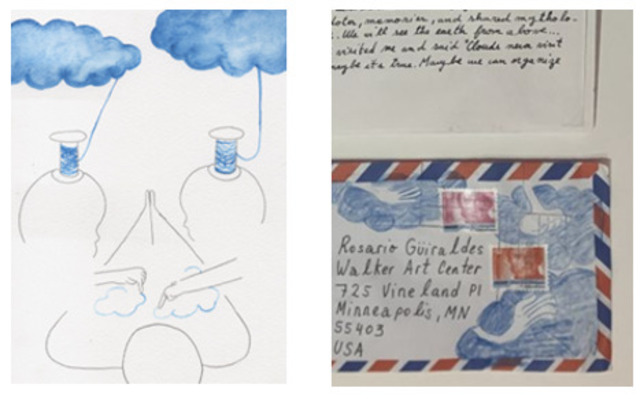 dota, memories, and shared mytholo-
. We will see the earth from above...
visited me and said "Clouds never visit
maybe its true. Maybe we can organize
Rosario Güiraldes
Walker Art Center
725 Vineland Pl
Minneapolis, MN
55403
USA